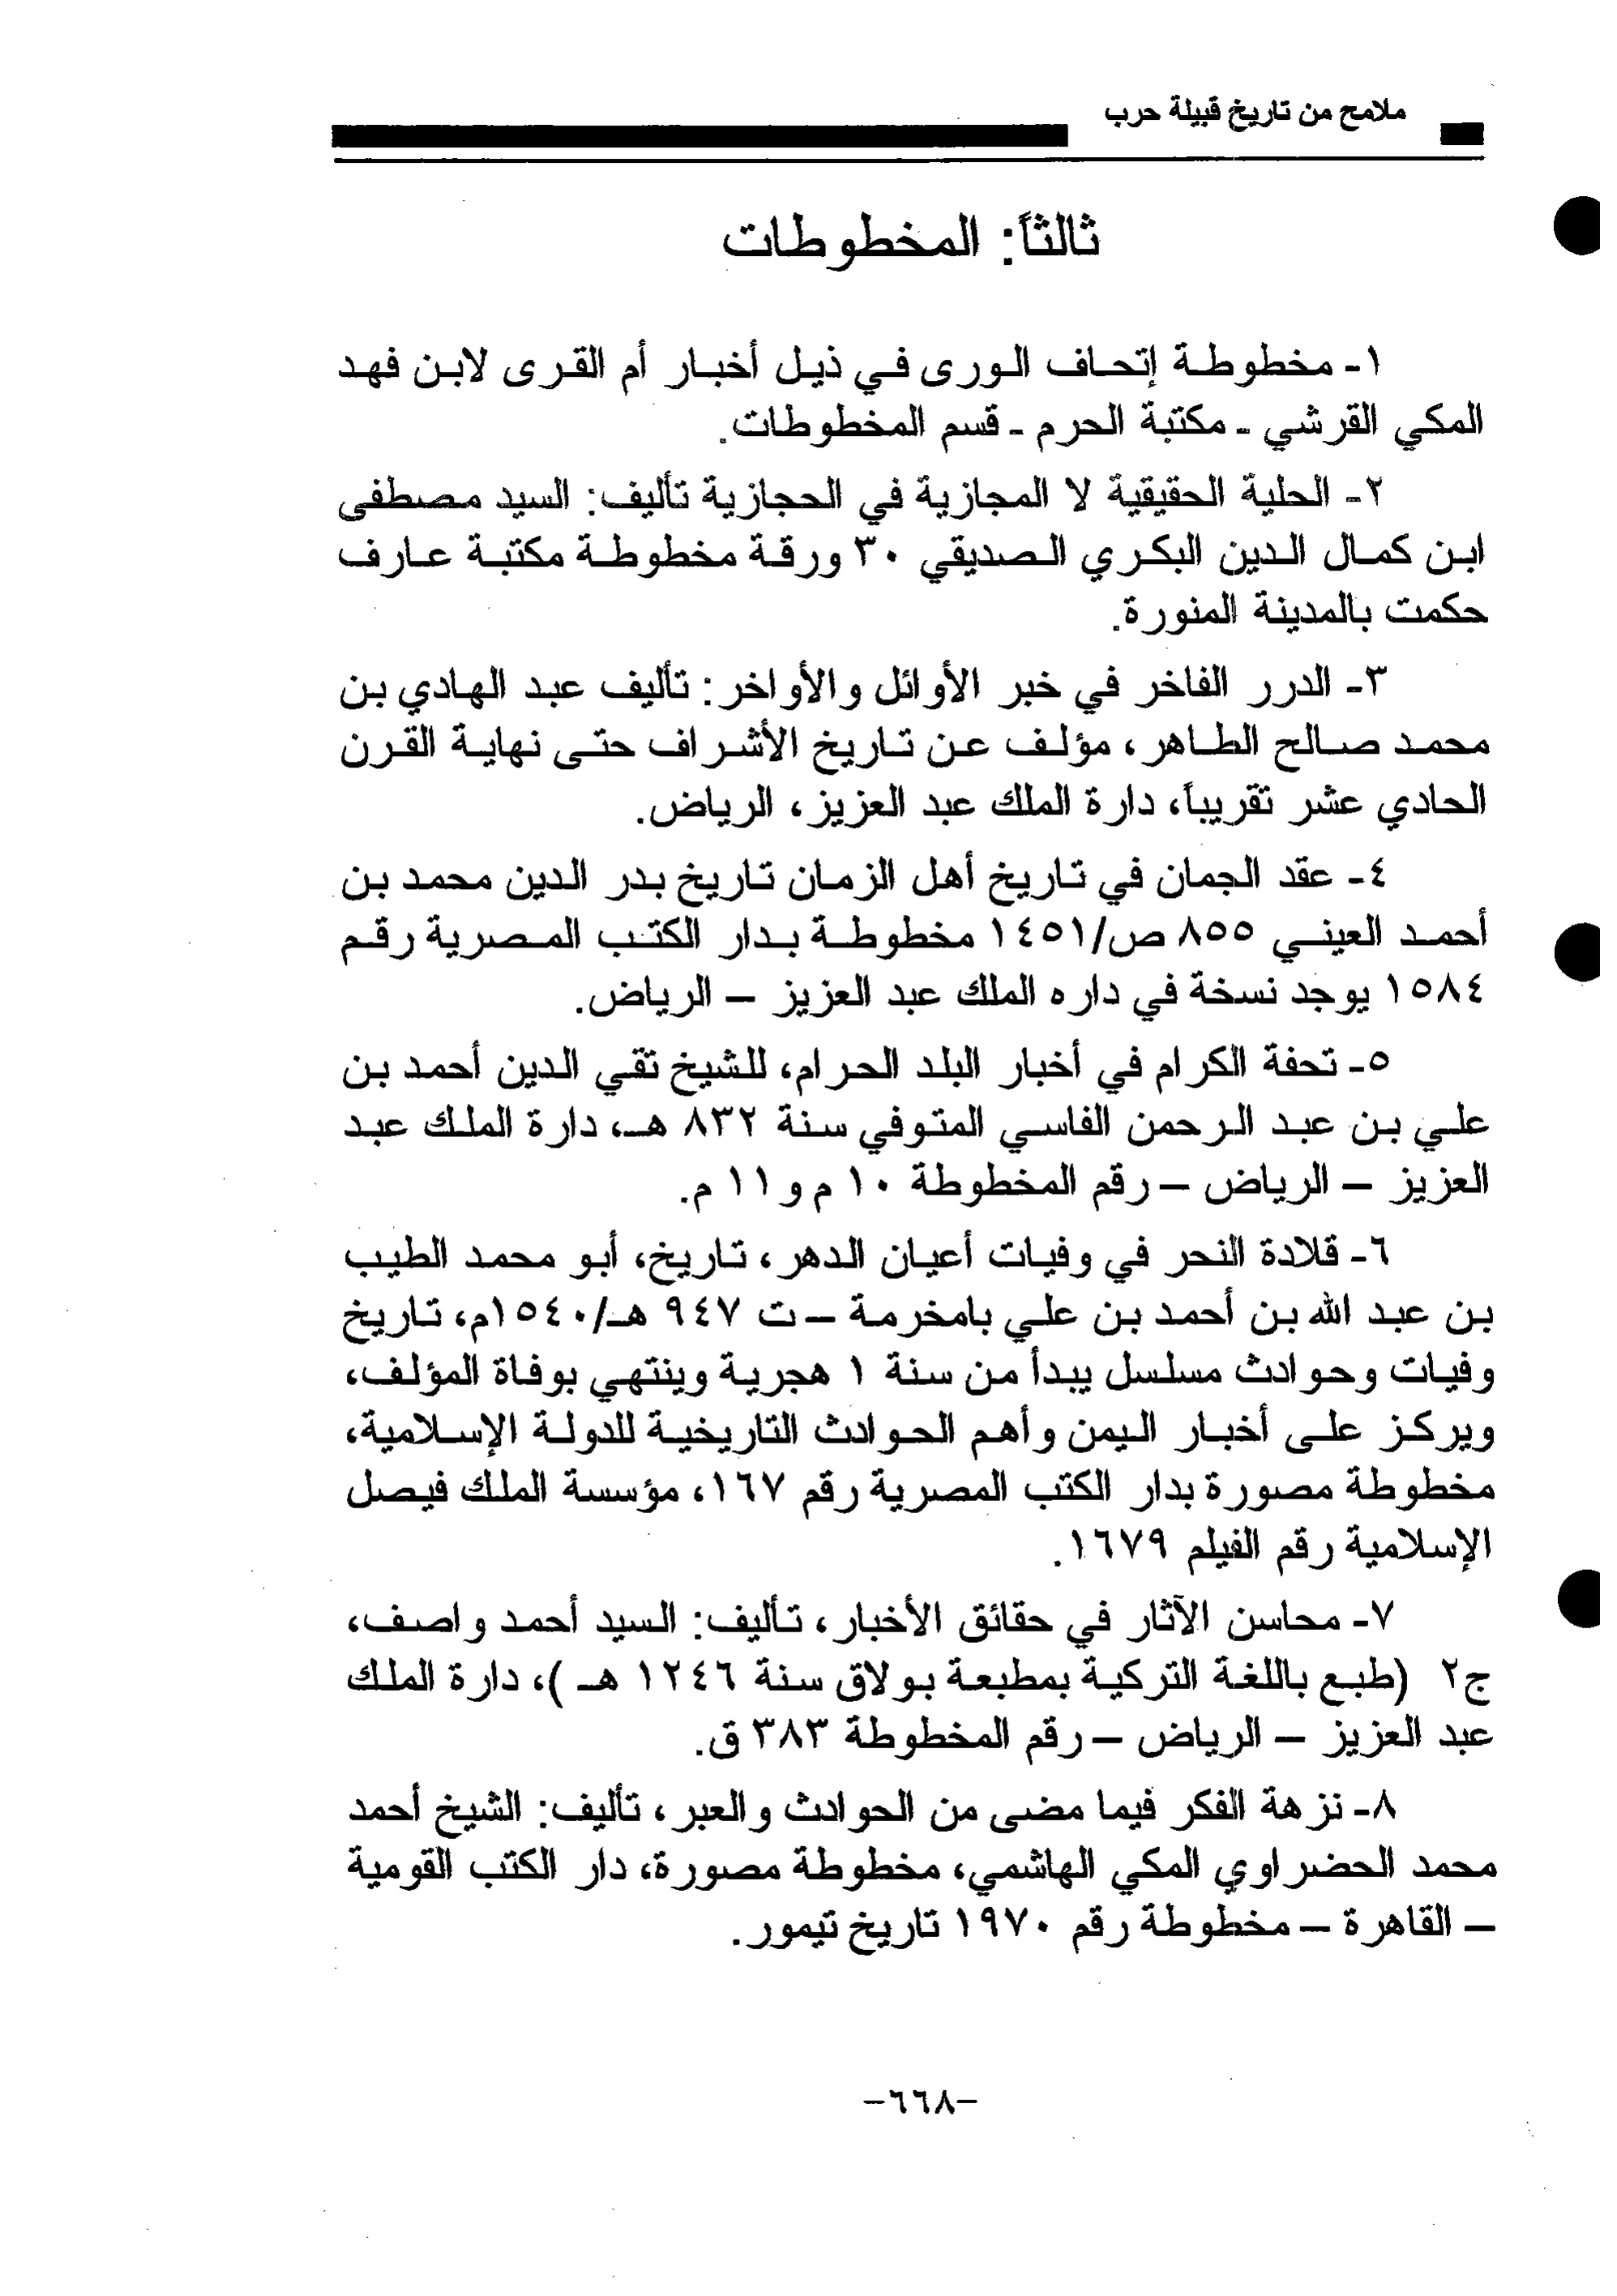 ملامح من تاريخ قبيلة حرب
ثالثاً: المخطوطات
١- مخطوطة إتحاف الورى في ذيل أخبار أم القرى لابن فهد
المكي القرشي - مكتبة الحرم - قسم المخطوطات.
٢- الحلية الحقيقية لا المجازية في الحجازية تأليف: السيد مصطفى
ابن كمال الدين البكري الصديقي ٣٠ ورقة مخطوطة مكتبة عارف
حكمت بالمدينة المنورة.
٣- الدرر الفاخر في خبر الأوائل والأواخر: تأليف عبد الهادي بن
محمد صالح الطاهر، مؤلف عن تاريخ الأشراف حتى نهاية القرن
الحادي عشر تقريباً، دارة الملك عبد العزيز، الرياض.
٤- عقد الجمان في تاريخ أهل الزمان تاريخ بدر الدين محمد بن
أحمد العيني ٨٥٥ ص/١٤٥١ مخطوطة بدار الكتب المصرية رقم
١٥٨٤ يوجد نسخة في داره الملك عبد العزيز – الرياض.
٥- تحفة الكرام في أخبار البلد الحرام، للشيخ تقي الدين أحمد بن
علي بن عبد الرحمن الفاسي المتوفي سنة ٨٣٢ هـ، دارة الملك عبد
العزيز – الرياض – رقم المخطوطة ١٠ م و ١١ م.
٦- قلادة النحر في وفيات أعيان الدهر، تاريخ، أبو محمد الطيب
بن عبد الله بن أحمد بن علي بامخرمة – ت ٩٤٧ هـ/١٥٤٠م، تاريخ
وفيات وحوادث مسلسل يبدأ من سنة ١ هجرية وينتهي بوفاة المؤلف،
ويركز على أخبار اليمن وأهم الحوادث التاريخية للدولة الإسلامية،
مخطوطة مصورة بدار الكتب المصرية رقم ١٦٧، مؤسسة الملك فيصل
الإسلامية رقم الفيلم ١٦٧٩.
٧- محاسن الآثار في حقائق الأخبار، تأليف: السيد أحمد واصف،
ج٢ (طبع باللغة التركية بمطبعة بولاق سنة ١٢٤٦ هـ )، دارة الملك
عبد العزيز – الرياض – رقم المخطوطة ٣٨٣ ق.
٨- نزهة الفكر فيما مضى من الحوادث والعبر، تأليف: الشيخ أحمد
محمد الحضراوي المكي الهاشمي، مخطوطة مصورة، دار الكتب القومية
– القاهرة – مخطوطة رقم ١٩٧٠ تاريخ تيمور.
-٦٦٨-